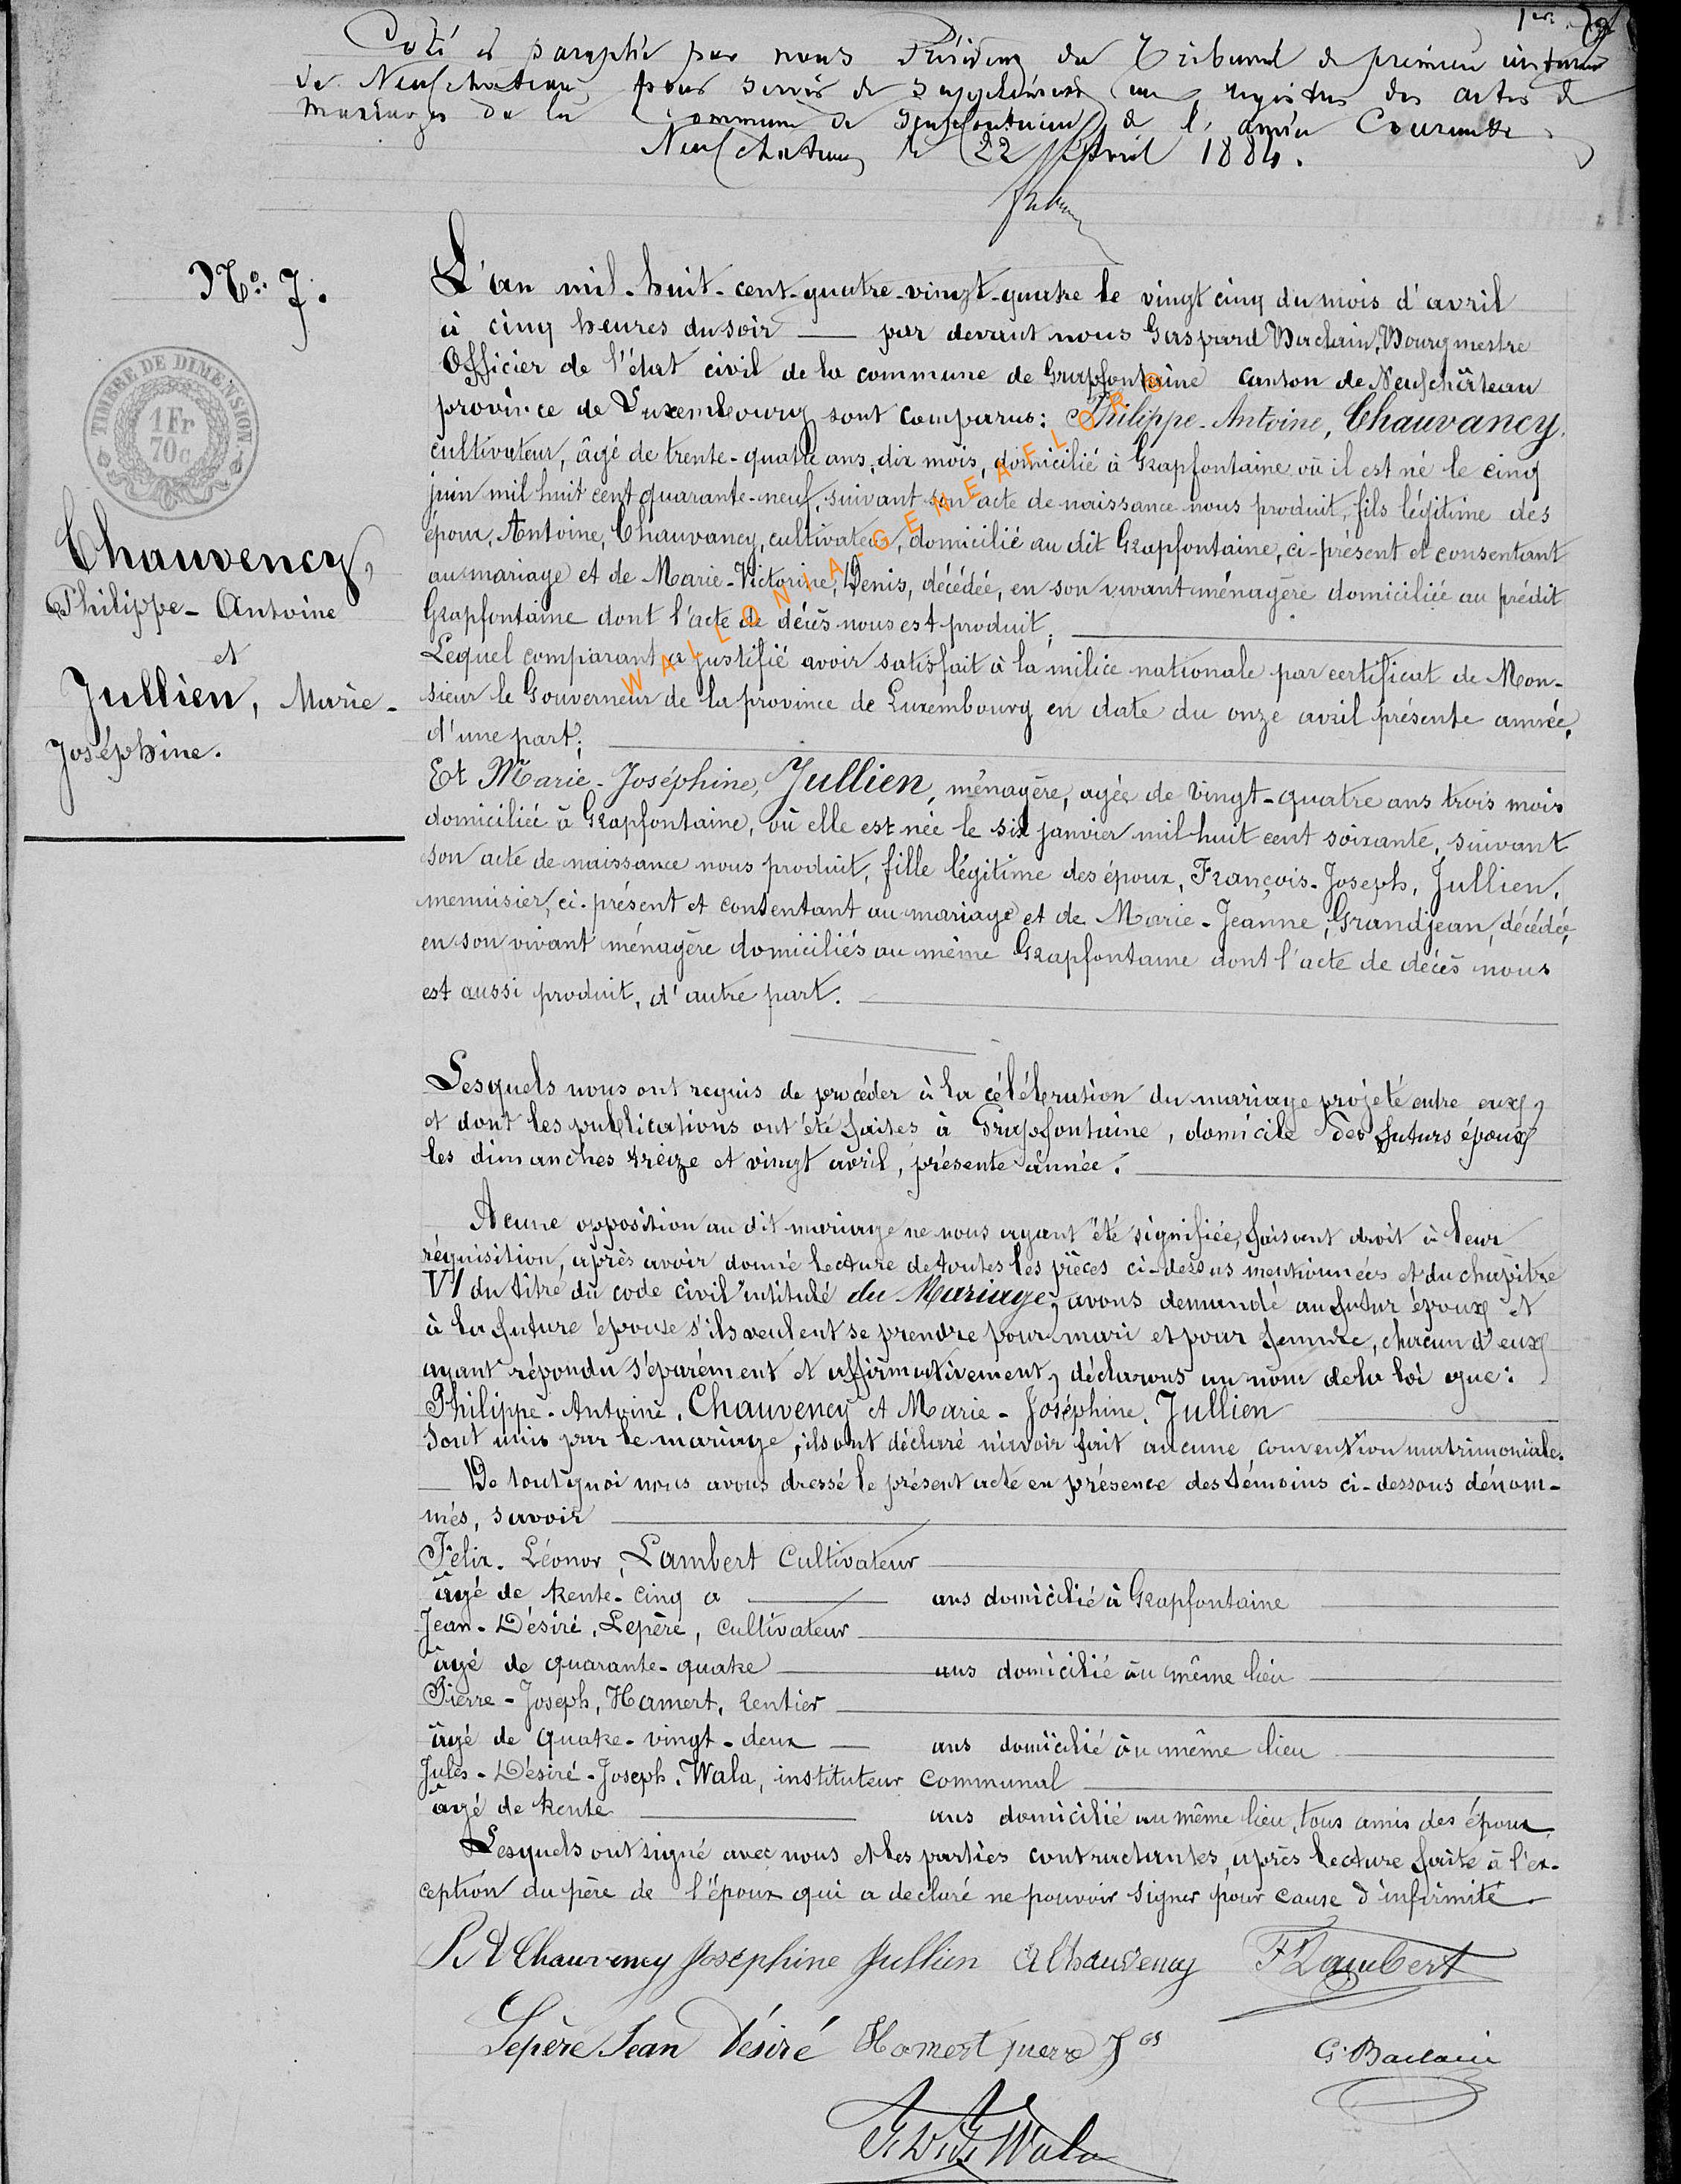 1er
Coté et paraphé par nous Président du Tribunal de première instance
de Neufchateau pour servir de supplément au registre des actes de
mariages de la Commune de Grapfontaine de l'année Courante.
Neufchateau le 22 Avril 1884.
No. 7.
TIMBRE DE DIMENSION
1 Fr
70c
Chauvency,
Philippe-Antoine
et
Jullien, Marie-
Joséphine.
L'an mil-huit-cent-quatre-vingt-quatre le vingt cinq du mois d'avril
à cinq heures du soir — par devant nous Gaspard Baclain, Bourgmestre
Officier de l'état civil de la commune de Grapfontaine canton de Neufchâteau
province de Luxembourg sont comparus: Philippe-Antoine, Chauvancy,
cultivateur, âgé de trente-quatre ans, dix mois, domicilié à Grapfontaine où il est né le cinq
juin mil huit cent quarante-neuf, suivant son acte de naissance nous produit, fils légitime des
époux, Antoine, Chauvancy, cultivateur, domicilié au dit Grapfontaine, ci-présent et consentant
au mariage et de Marie-Victorine, Denis, décédée, en son vivant ménagère domiciliée au prédit
Grapfontaine dont l'acte de décès nous est produit;
Lequel comparant a justifié avoir satisfait à la milice nationale par certificat de Mon-
sieur le Gouverneur de la province de Luxembourg en date du onze avril présente année,
d'une part;
Et Marie-Joséphine, Jullien, ménagère, agée de vingt-quatre ans trois mois
domiciliée à Grapfontaine, où elle est née le six janvier mil huit cent soixante, suivant
son acte de naissance nous produit, fille légitime des époux, François-Joseph, Jullien,
menuisier, ci-présent et consentant au mariage et de Marie-Jeanne, Grandjean, décédée,
en son vivant ménagère domiciliés au même Grapfontaine dont l'acte de décès nous
est aussi produit, d'autre part.
Lesquels nous ont requis de procéder à la célébration du mariage projeté entre eux,
et dont les publications ont été faites à Grapfontaine, domicile des futurs époux
les dimanches treize et vingt avril, présente année.
Acune opposition au dit mariage ne nous ayant été signifiée, faisant droit à leur
réquisition, après avoir donné lecture de toutes les pièces ci-dessus mentionnées et du chapitre
VI du titre du code civil intitulé du Mariage, avons demandé au futur époux et
à la future épouse s'ils veulent se prendre pour mari et pour femme, chacun d'eux
ayant répondu séparément et affirmativement, déclarons au nom de la loi que:
Philippe-Antoine, Chauvency et Marie-Joséphine, Jullien
Sont unis par le mariage, ils ont déclaré n'avoir fait aucune convention matrimoniale.
De tout quoi nous avons dressé le présent acte en présence des témoins ci-dessous dénom-
més, savoir
Félix-Léonor, Lambert Cultivateur
âgé de trente-cinq a — ans domicilié à Grapfontaine
Jean-Désiré, Lepère, cultivateur
âgé de quarante-quatre — ans domicilié au même lieu
Pierre-Joseph, Hamert, rentier
âgé de quatre-vingt-deux — ans domicilié au même lieu
Jules-Désiré-Joseph, Wala, instituteur communal
âgé de trente — ans domicilié au même lieu, tous amis des époux
Lesquels ont signé avec nous et les parties contractantes, après lecture faite à l'ex-
ception du père de l'époux qui a declaré ne pouvoir signer pour cause d'infirmité
P A Chauvency Josephine Jullien A Chauvency F Lambert
Lepère Jean Désiré Hamert pierre Jos G. Baclain
J. D. J. Wala
WALLONIA-GENEAFLORE